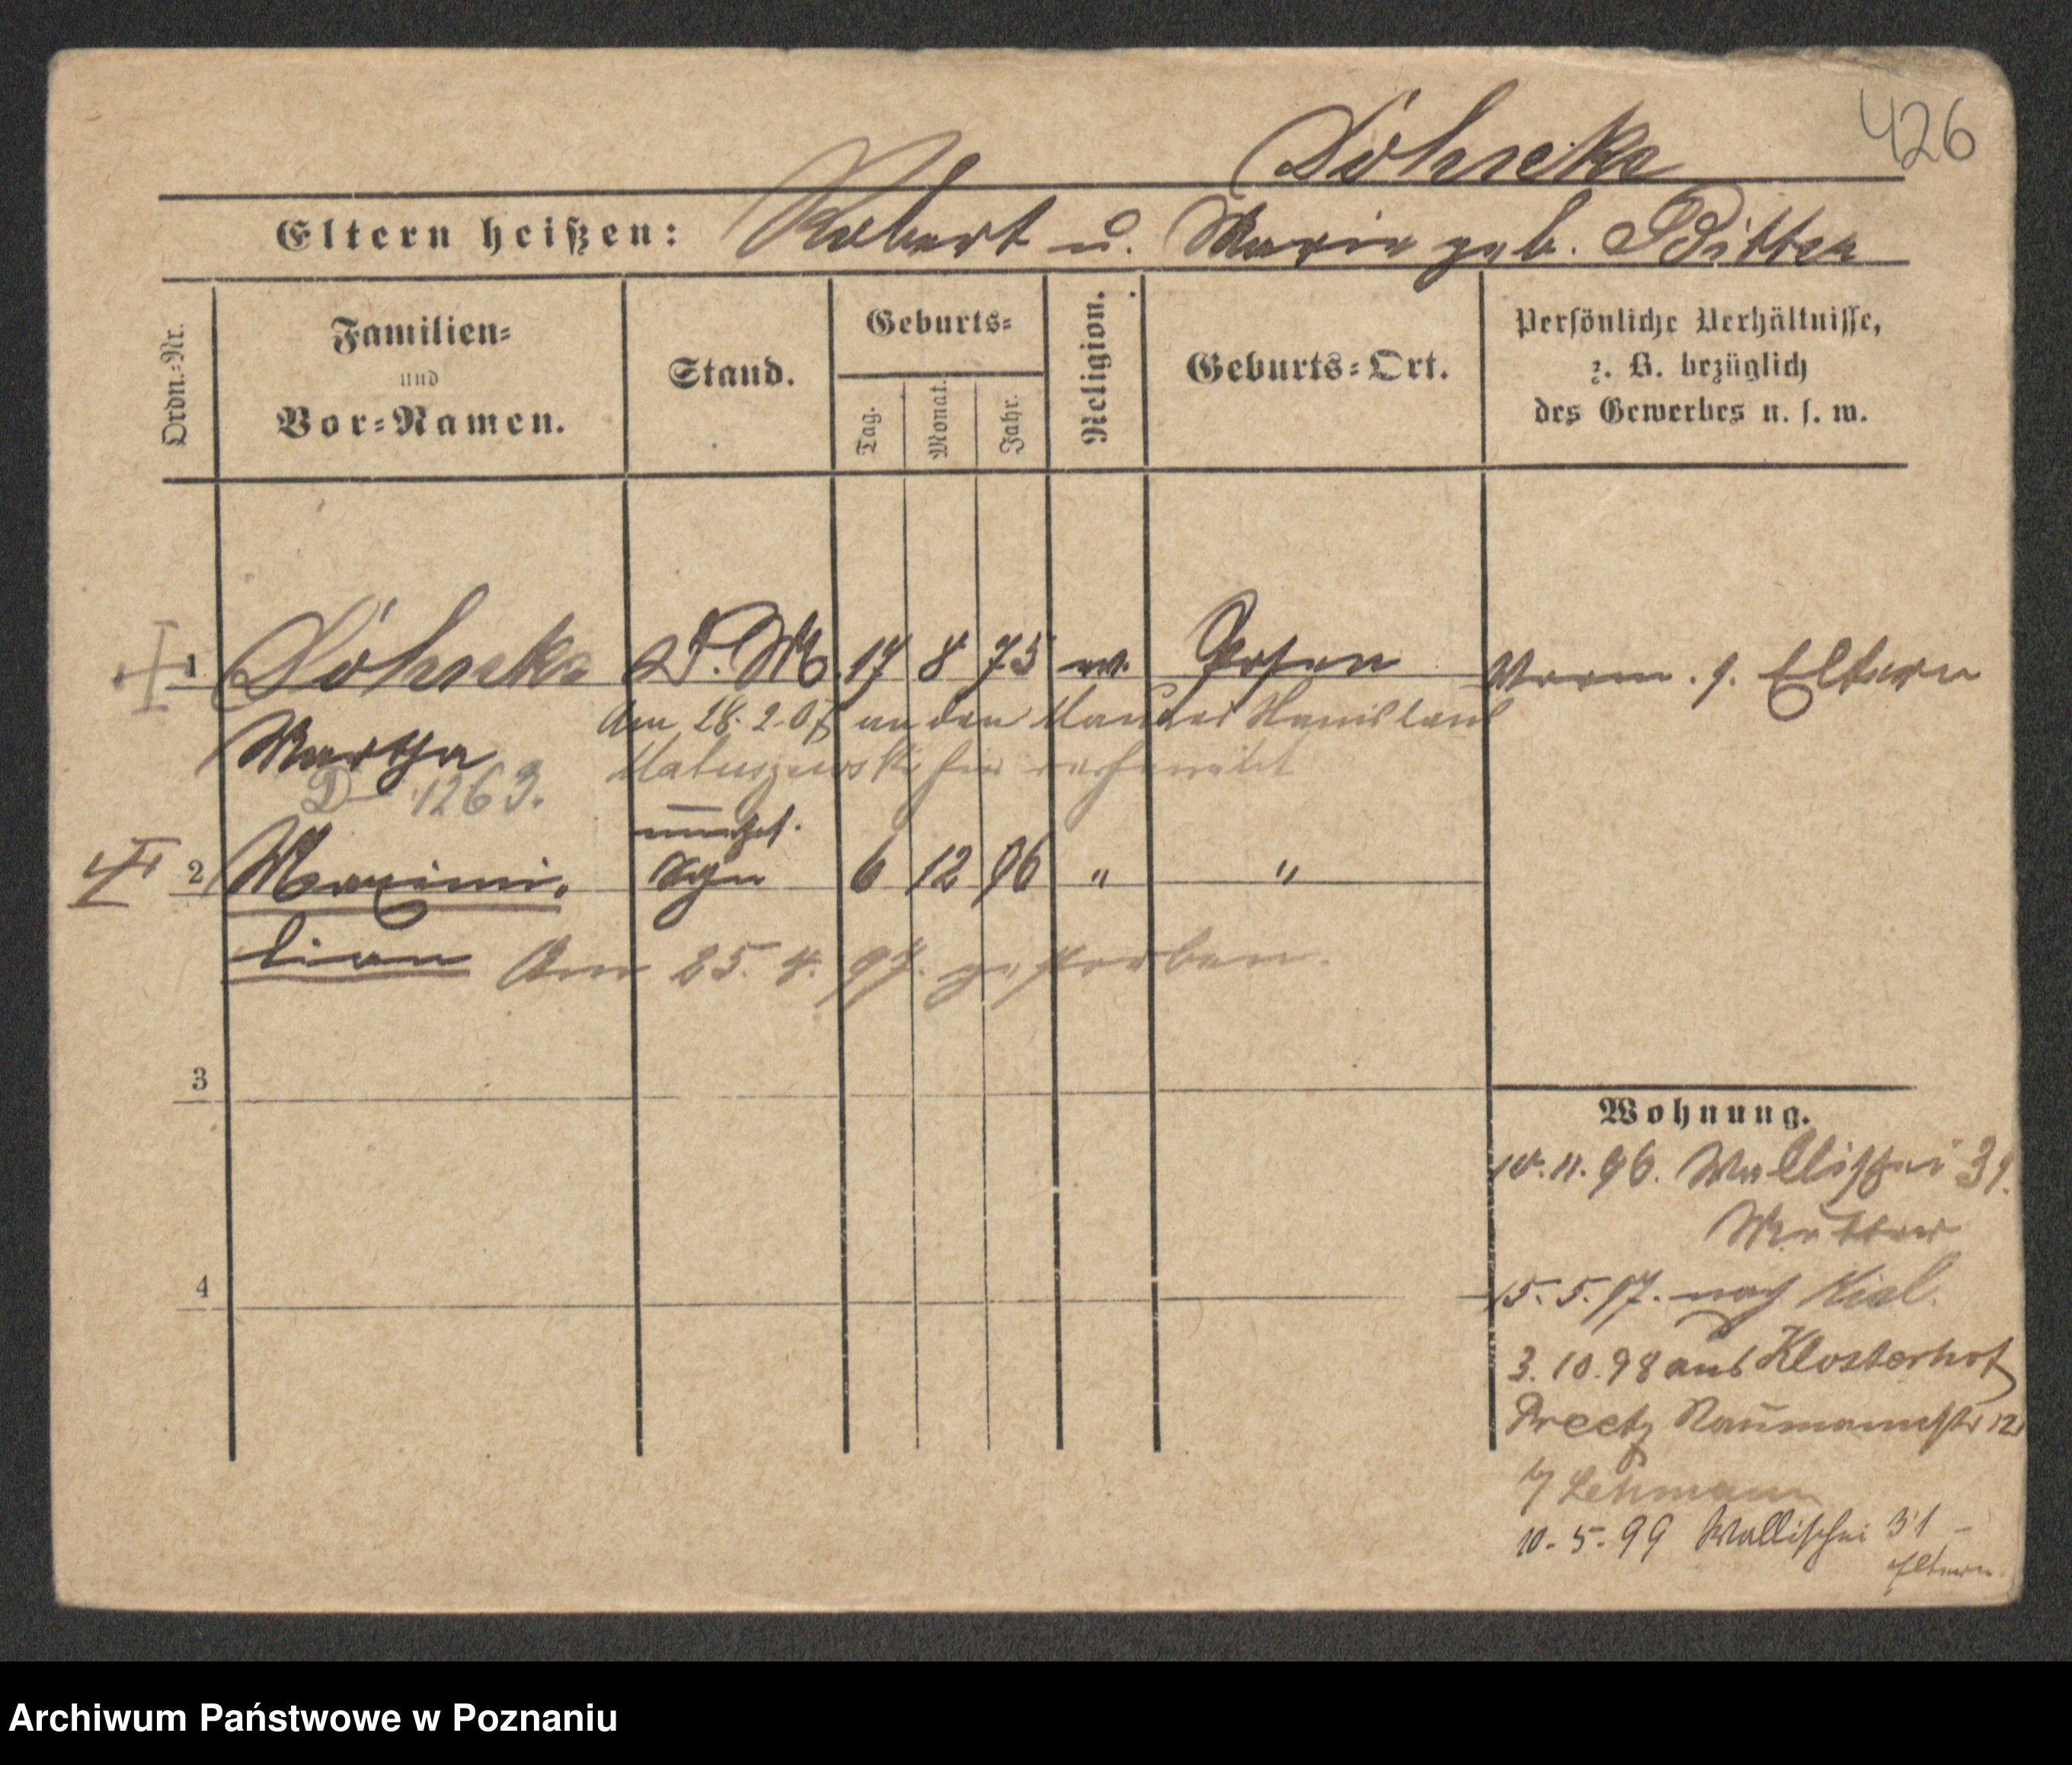 426
Döhneke
Eltern heißen: Robert u. Marie geb. Ditter
Ordn.=Nr.
Familien=
und
Vor=Namen.
Stand.
Geburts=
Tag.
Monat.
Jahr.
Religion.
Geburts=Ort.
Persönliche Verhältnisse,
z. B. bezüglich
des Gewerbes u. s. w.
1 D. M. 17 8 75 ev. Posen Verm. s. Eltern
Am 28. 2. 05 an den Maurer Stanislaus
Martha
Matuszewski hier verheiratet
D 1263.
unehel.
2 Maximi- Sohn 6 12 96 " "
lian Am 25. 4. 97. gestorben.
3
4
Wohnung.
10. 11. 96. Wallischei 31.
Mutter
15. 5. 97. nach Kiel.
3. 10. 98 aus Klosterhof
Preetz Naumannstr 12
b/ Lehmann
10. 5. 99 Wallischei 31 –
Eltern.
Archiwum Państwowe w Poznaniu